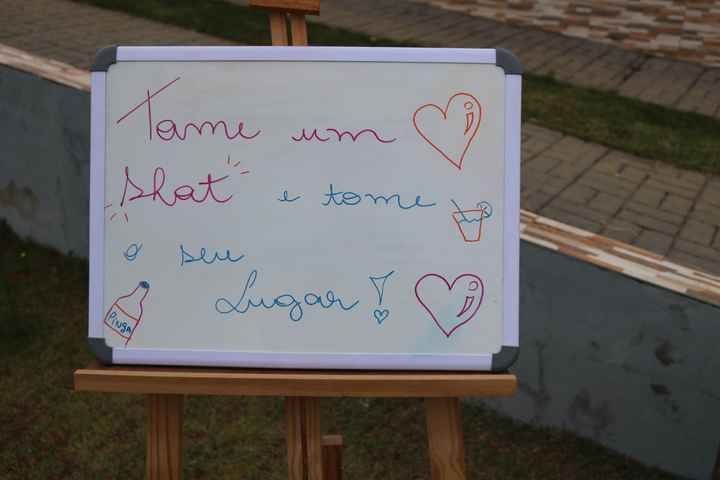 Tome um
shot e tome
o seu
Lugar!
Pinga